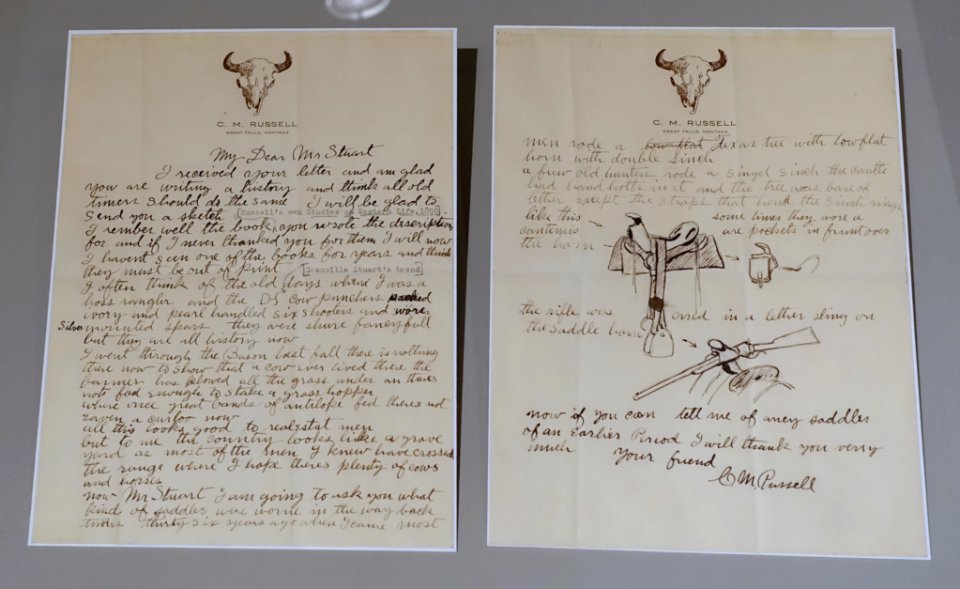 C. M. RUSSELL
GREAT FALLS, MONTANA
My Dear Mr Stuart
I received your letter and am glad
you are writing a history and think all old
timers should do the same I will be glad to
send you a sketch [Russell's own Studies of Western Life, 1890]
I rember well the book you wrote the description
for and if I never thanked you for them I will now
I havent seen one of the books for years and think
they must be out of print
[Granville Stuart's brand]
I often think of the old days when I was a
hoss rangler and the DS Cow punchers packed
ivory and pearl handled six shooters and wore
Silver mounted spurs they were shure fancyfull
but they are all history now
I went through the Bason last fall there is nothing
there now to show that a cow ever lived there the
barmer has plowed all the grass under an thaires
not fead enough to stake a grass hopper
where once great bands of antilope fed theres not
eaven a curloo now
all this looks good to realestat men
but to me the country looks like a grave
yard as most of the men I knew have crossed
the range where I hope theres plenty of cows
and horses
now Mr Stuart I am going to ask you what
kind of saddles were worne in the way back
times thirty six years ago when I came most
C. M. RUSSELL
GREAT FALLS, MONTANA
men rode a low flat Texas tree with low flat
horn with double Sinch
a fiew old hunters rode a singel sinch the cantle
had hand holts in it and the tree was bare of
lether except the straps that hend the Sinch rings
like this some times they wore a
cantenus are pockets in frunt over
the horn
the rifle was carred in a lether sling on
the saddle horn
now if you can tell me of aney saddles
of an Earlier Period I will thank you verry
much Your friend
C M Russell